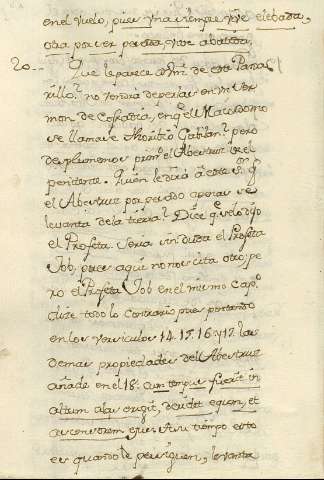 en el vuelo, pues una siempre vive elebada,
otra por ser pesada, vive abatida.
20.. Que le parece a Vm. de este Parra
rillo? no vendrá de perlas en un Ser
mon de Cofradia, en q. el Maiordomo
se llamase Mauricio Gabilan? pero
desplumemos prim.o el Abestruz de el
penitente. Quien le dixo a este S.r q.
el Abestruz por pesado apenas se
levanta de la tierra? Dice q. se lo dijo
el Profeta. Seria sin duda el Profeta
Job, pues aqui no nos cita otro: pe
ro el Profeta Job en el mismo cap.o
dize todo lo contrario pues pintando
en los versiculos 14. 15. 16. y 17. las
demas propiedades del Abestruz
añade en el 18. cum tempus fuerit in
altum alas erigit, deridet equum, et
ascensorem ejus. A su tiempo esto
es quando le persiguen, levanta